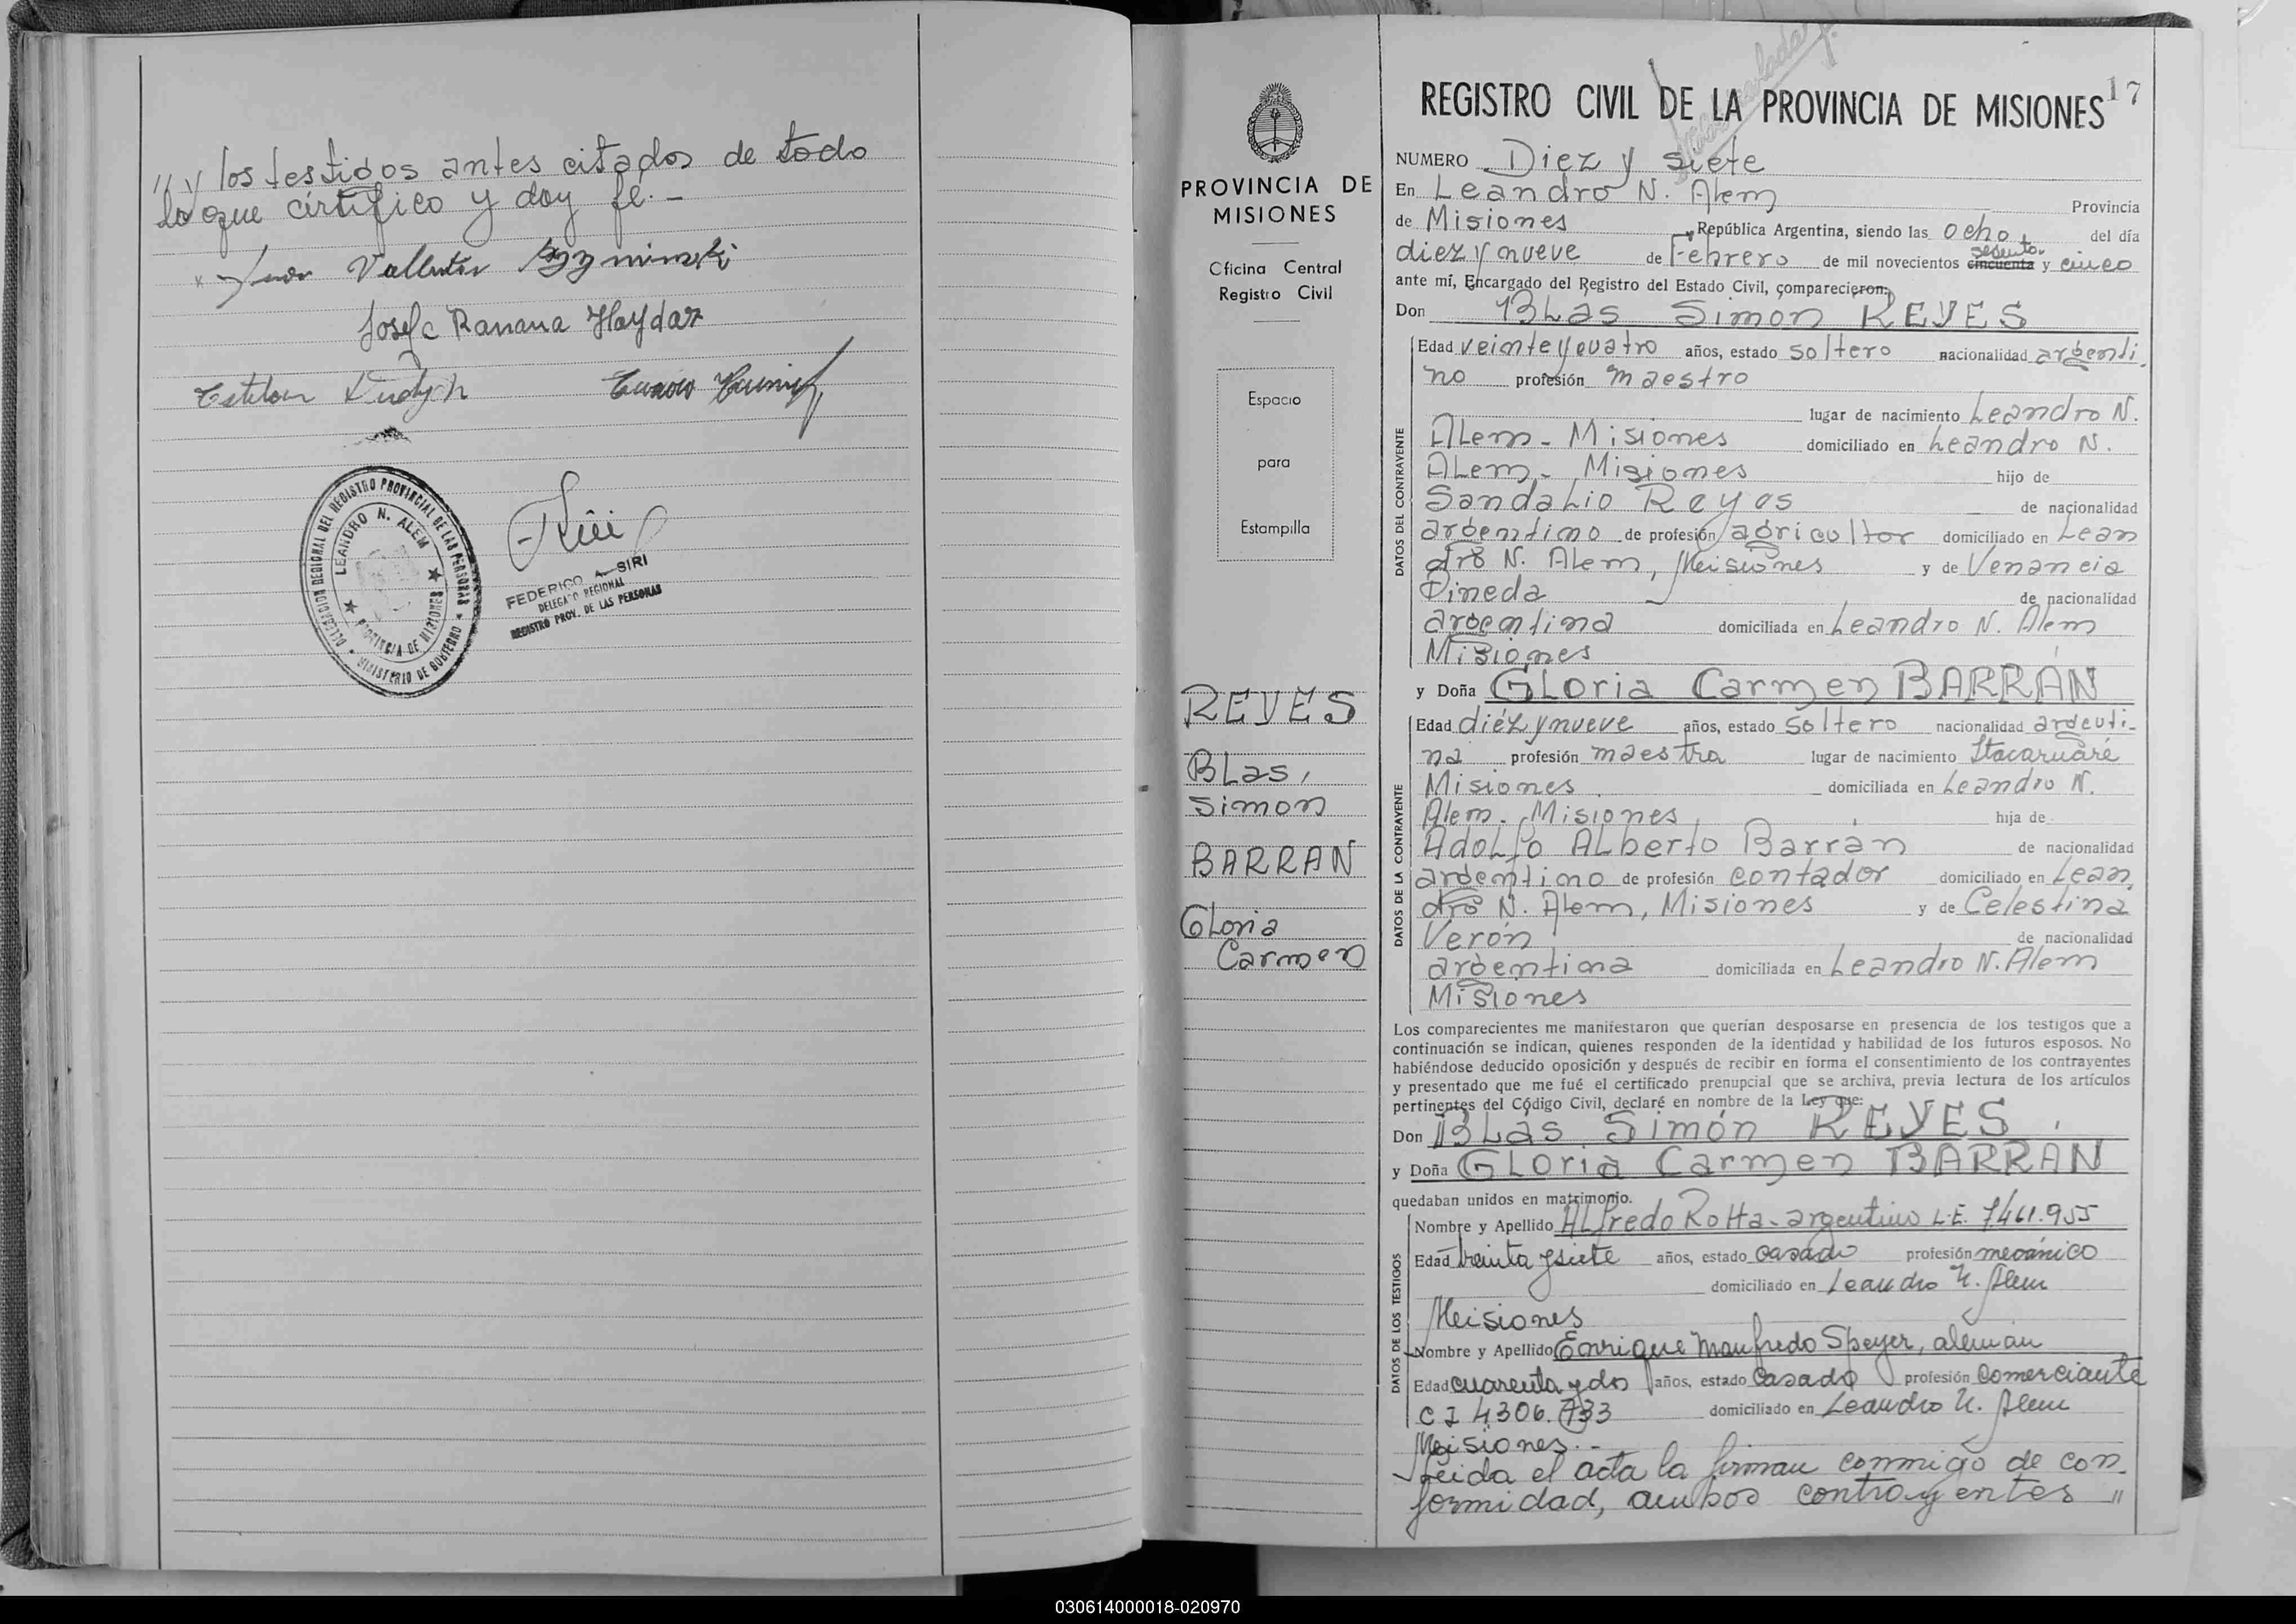 // y los testigos antes citados de todo
lo que certifico y doy fé. -
Juan Vallentin
Josefa Ramana Haydar
Esteban
DELEGACION REGIONAL DEL REGISTRO PROVINCIAL DE LAS PERSONAS
LEANDRO N. ALEM
PROVINCIA DE MISIONES
MINISTERIO DE GOBIERNO
FEDERICO A. SIRI
DELEGADO REGIONAL
REGISTRO PROV. DE LAS PERSONAS
PROVINCIA DE
MISIONES
Oficina Central
Registro Civil
Espacio
para
Estampilla
REYES
BLas,
Simon
BARRAN
GLoria
Carmen
17
REGISTRO CIVIL DE LA PROVINCIA DE MISIONES
NUMERO Diez y siete
En Leandro N. Alem Provincia
de Misiones República Argentina, siendo las ocho del día
diez y nueve de Febrero de mil novecientos cincuenta sesenta y cinco
ante mí, Encargado del Registro del Estado Civil, comparecieron:
Don BLas Simon REYES
DATOS DEL CONTRAYENTE
Edad veinte y cuatro años, estado soltero nacionalidad argenti-
no profesión maestro
lugar de nacimiento Leandro N.
ALem - Misiones domiciliado en Leandro N.
ALem - Misiones hijo de
SandaLio Reyes de nacionalidad
argentino de profesión agricultor domiciliado en Lean
dro N. Alem, Misiones y de Venancia
Pineda de nacionalidad
argentina domiciliada en Leandro N. Alem
Misiones
y Doña GLoria Carmen BARRÁN
DATOS DE LA CONTRAYENTE
Edad diéz y nueve años, estado soltero nacionalidad argenti-
na profesión maestra lugar de nacimiento Itacaruaré
Misiones domiciliada en Leandro N.
Alem. Misiones hija de
AdoLfo ALberto Barrán de nacionalidad
argentino de profesión contador domiciliado en Lean
dro N. Alem, Misiones y de Celestina
Verón de nacionalidad
argentina domiciliada en Leandro N. Alem
Misiones
Los comparecientes me manifestaron que querían desposarse en presencia de los testigos que a
continuación se indican, quienes responden de la identidad y habilidad de los futuros esposos. No
habiéndose deducido oposición y después de recibir en forma el consentimiento de los contrayentes
y presentado que me fué el certificado prenupcial que se archiva, previa lectura de los artículos
pertinentes del Código Civil, declaré en nombre de la Ley que:
Don BLas Simón REYES
y Doña GLoria Carmen BARRAN
quedaban unidos en matrimonio.
DATOS DE LOS TESTIGOS
Nombre y Apellido ALfredo Rotta - argentino L.E. 7461.955
Edad treinta y siete años, estado casado profesión mecánico
domiciliado en Leandro N. Alem
Misiones
Nombre y Apellido Enrique Manfredo Speyer, alemán
Edad cuarenta y dos años, estado casado profesión comerciante
C I 4306.733 domiciliado en Leandro N. Alem
Misiones. -
Leida el acta la firman conmigo de con-
formidad, ambos contrayentes //
030614000018-020970